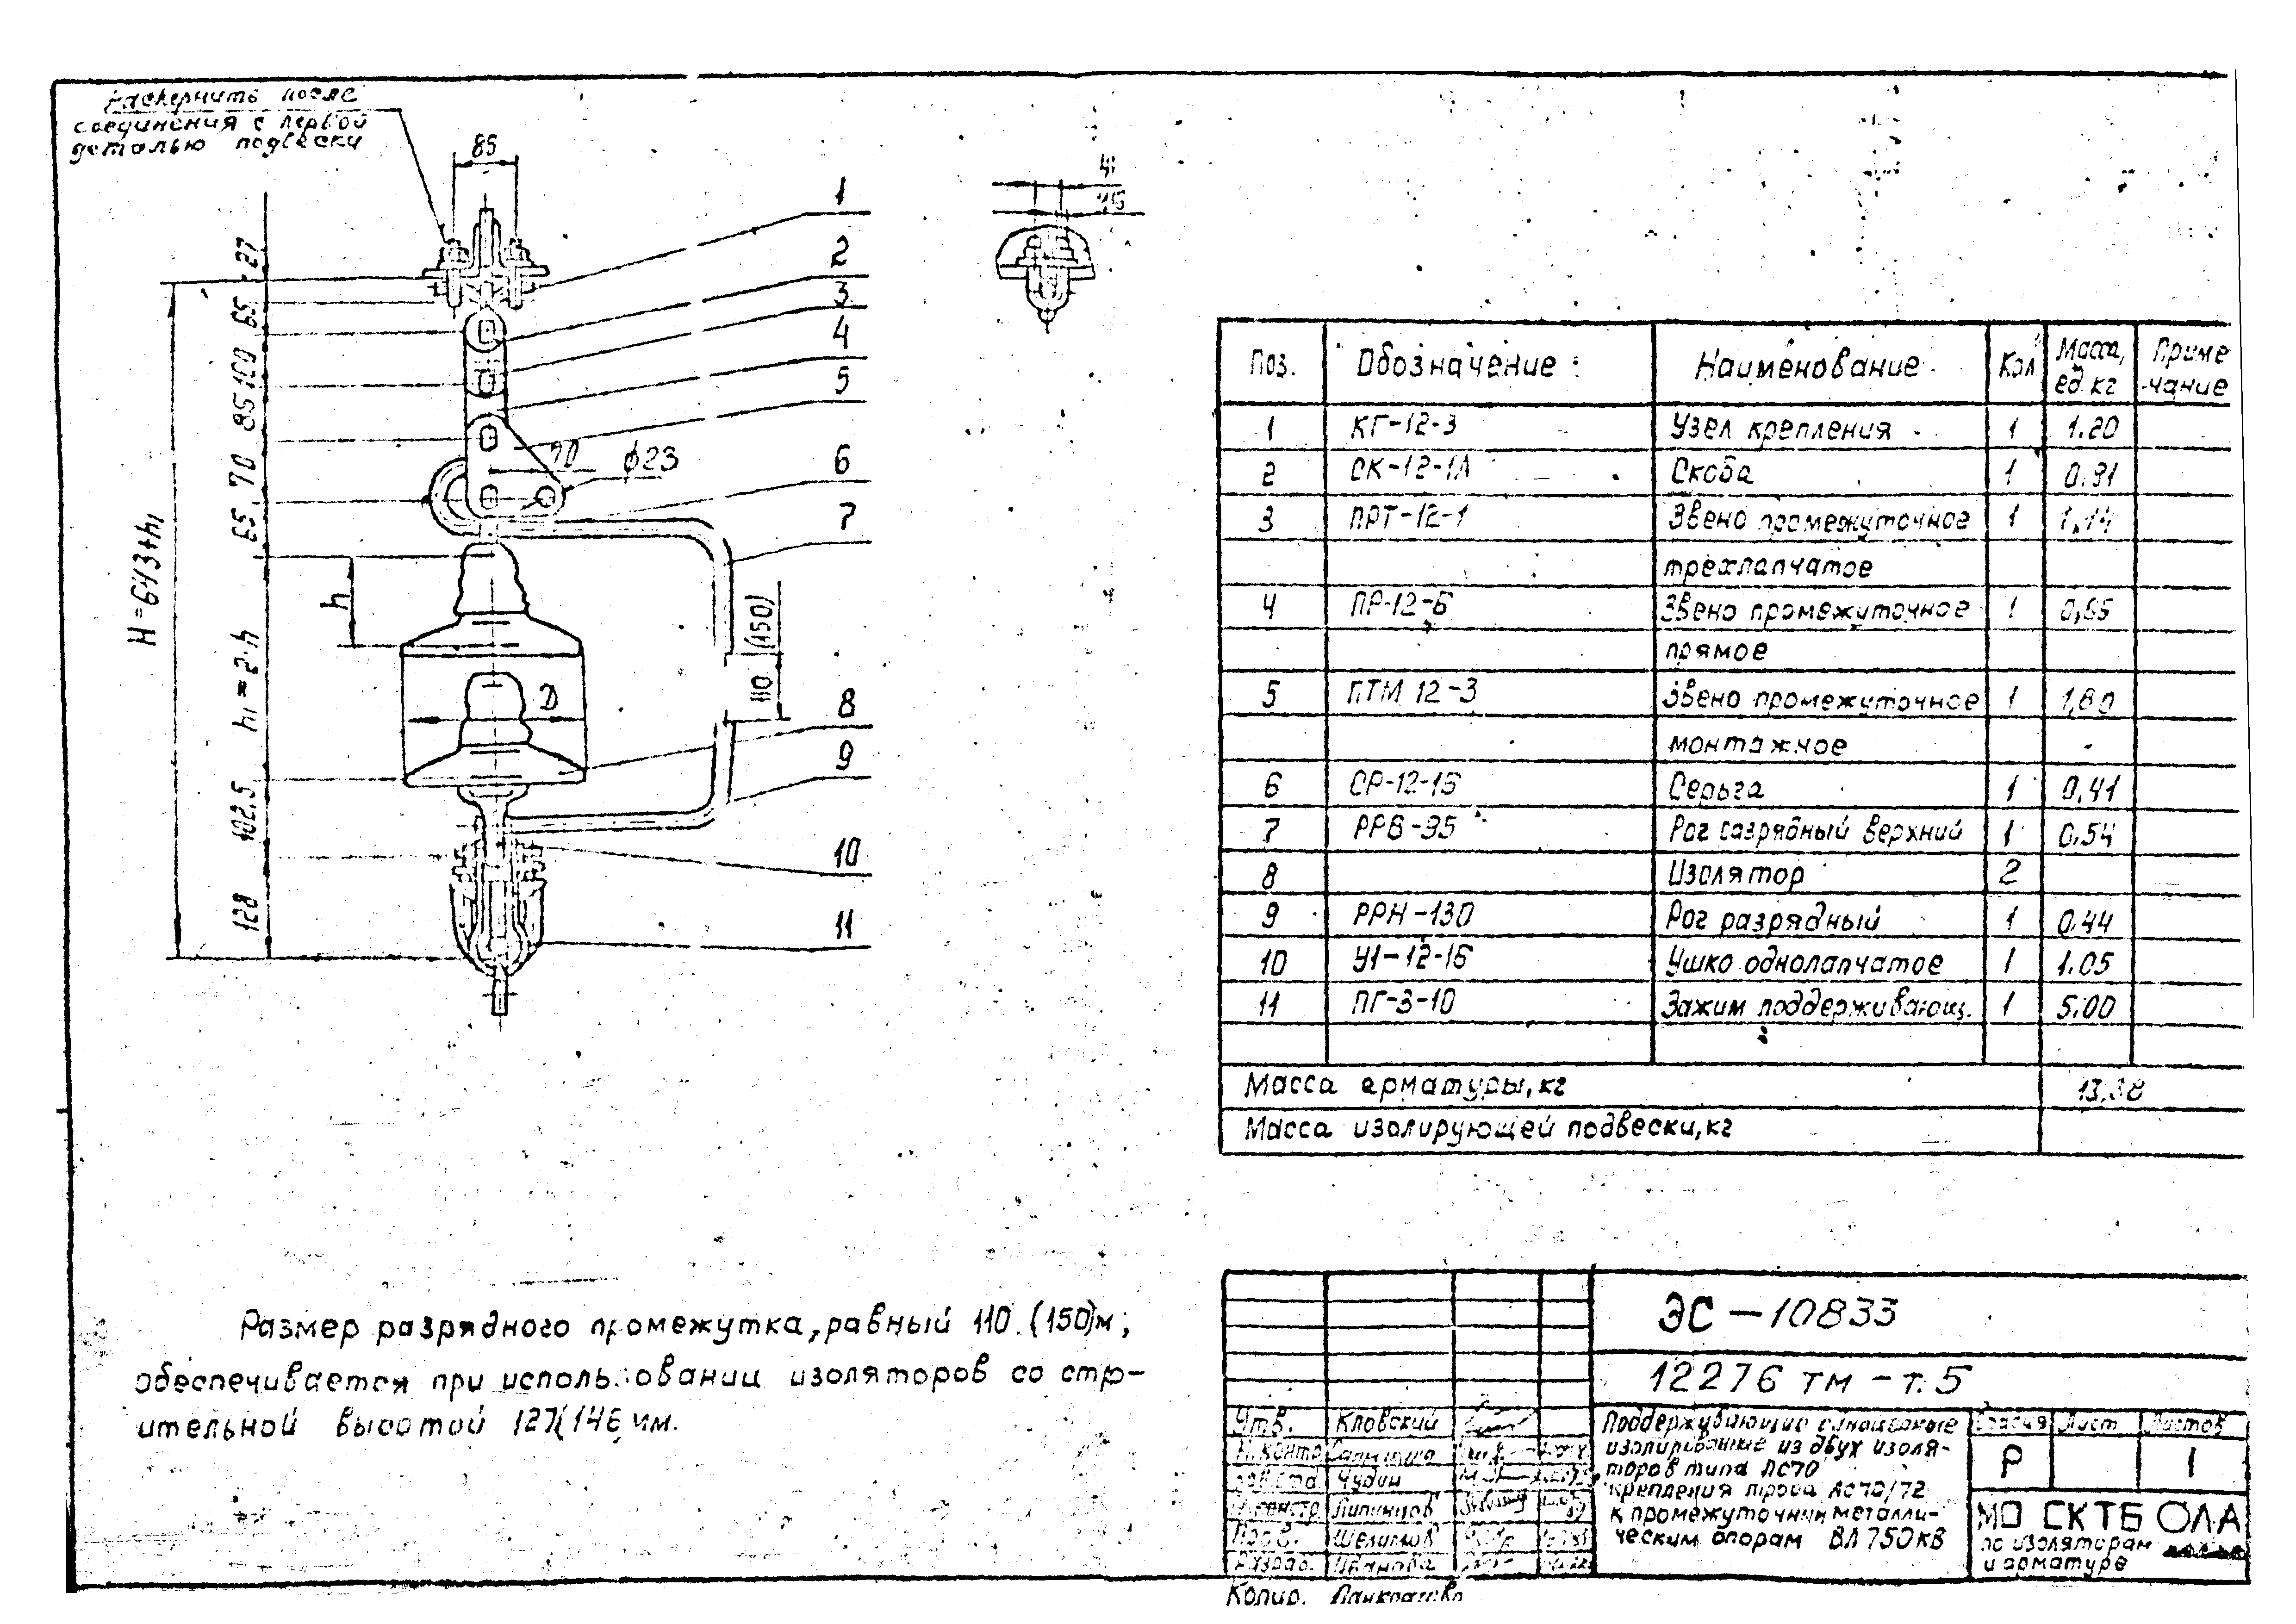 Раскернить после
соединения с первой
деталью подвески
85
41
1
2
3
4
5
6
7
8
9
10
11
27
65
100
85
70
65
h₁ = 2·h
102,5
128
H = 643+h₁
h
D
70
ϕ23
110 (150)
Поз. Обозначение Наименование Кол Масса, ед. кг Приме-чание
1 КГ-12-3 Узел крепления 1 1.20
2 СК-12-1А Скоба 1 0.91
3 ПРТ-12-1 Звено промежуточное 1 1,14
трехлапчатое
4 ПР-12-6 Звено промежуточное 1
прямое
5 ПТМ 12-3 Звено промежуточное 1 1,80
монтажное
6 СР-12-16 Серьга 1 0,41
7 РРВ-95 Рог разрядный верхний 1 0.54
8 Изолятор 2
9 РРН-130 Рог разрядный 1 0.44
10 У1-12-16 Ушко однолапчатое 1 1.05
11 ПГ-3-10 Зажим поддерживающ. 1 5.00
Масса арматуры, кг
Масса изолирующей подвески, кг
Размер разрядного промежутка, равный 110 (150)м,
обеспечивается при использовании изоляторов со стр-
ительной высотой 127(146 мм.
ЭС-10833
12276 тм-т.5
Поддерживающие
изолированные из двух изоля-
торов типа ПС70
крепления троса АС70/72
к промежуточным металли-
ческим опорам ВЛ 750 кВ
Стадия Лист Листов
Р 1
МО СКТБ ОЛА
по изоляторам
и арматуре
Утв. Кловский
Н.контр
Чудин
Шелимов
Разраб. Иванова
Копир. Панкратова